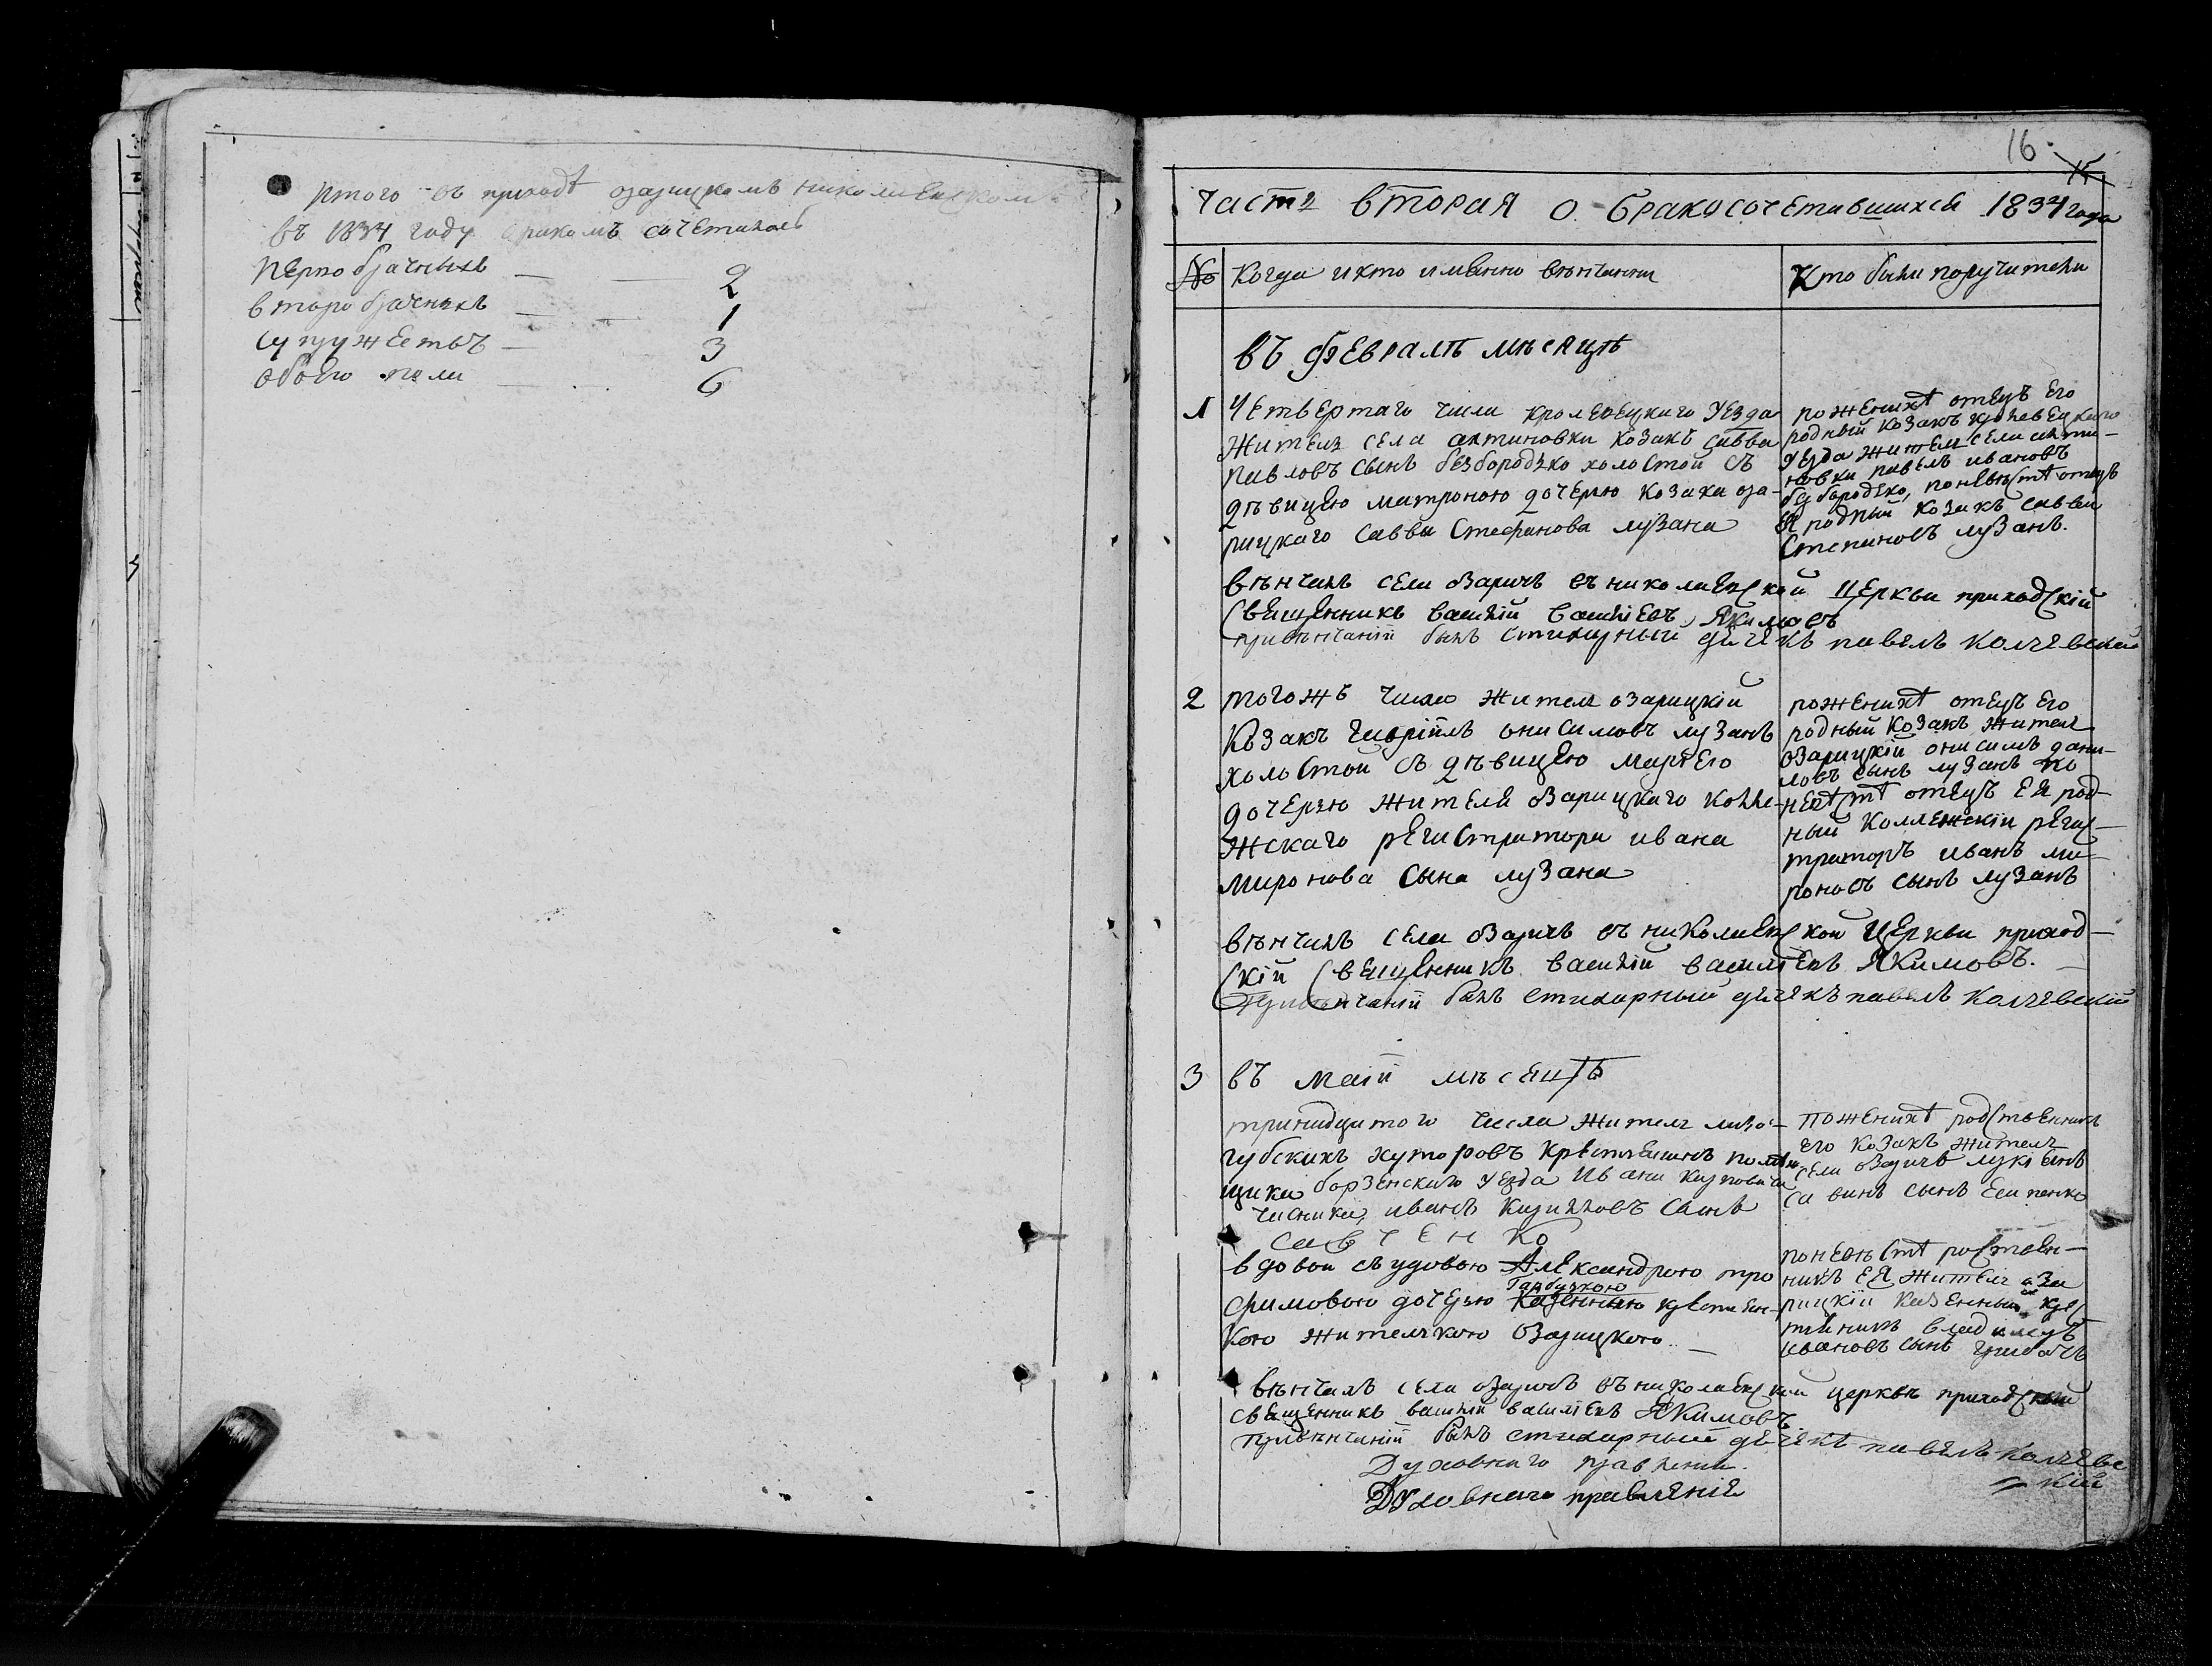 Итого въ приходѣ озарицкомъ николаевском
въ 1834 году бракомъ сочеталось
первобрачныхъ — — 2
второбрачныхъ — — 1
супружествъ — 3
обоего пола — 6
16. 15
Часть вторая о бракосочетавшихся 1834 года
№ Когда и кто именно вѣнчанни
Кто были поручители
въ февралѣ мѣсяцѣ
1 Четвертаго числа кролевецкаго уезда
жителя села октиновки козакъ савва
павловъ сынъ безбородько холостой съ
дѣвицею матроною дочерью козака оза-
рицкаго саввы стефанова лузана
по женихѣ отецъ его
родный козакъ кролевецкаго
уезда житель села акти-
новки павелъ ивановъ
безбородько, по невѣстѣ отецъ
ея родный козакъ савва
степановъ лузанъ.
вѣнчалъ села озаричъ въ николаевской церкви приходскій
священникъ василій васіліевъ Якимовъ
при вѣнчаніи былъ стихарный дячекъ павелъ Колчевскій
2 тогожъ числа житель озарицкій
Козакъ гавріилъ онисимовъ лузанъ
холостой съ дѣвицею марѳею
дочерью жителя озарицкаго колле-
жскаго регистратора ивана
миронова сына лузана
по женихѣ отецъ его
родный козакъ житель
озарицкій онисимъ дани-
ловъ сынъ лузанъ по
невѣстѣ отецъ ея род-
ный коллежскій регис-
траторъ иванъ ми-
роновъ сынъ лузанъ
вѣнчалъ села озаричъ въ николаевской церкви приход-
скій священникъ василій василіевъ Якимовъ.
При вѣнчаніи былъ стихарный дячекъ павелъ Колчевскій
3 въ маіи мѣсяцѣ
тринадцатого числа житель лизо-
губскихъ хуторовъ крестьянинъ помѣ-
щика борзенскаго уезда Ивана
иванъ Кириловъ сынъ
савченко
вдовой съ удовою Александрою тро
фимовою дочерью Гарбузкою казенною крестьян-
кою жителькою Озарицкою. —
По женихѣ родственникъ
его козакъ житель
села озаричъ лукіянъ
савинъ сынъ Есипенко
по невѣстѣ родствен-
никъ ея житель оза
рицкій казенный крес
тянинъ владимеръ
ивановъ сынъ
вѣнчалъ села озаричъ въ николаевской церкви приходскій
священникъ василій василіевъ Якимовъ
При вѣнчаніи былъ стихарный дячекъ павелъ Колчевс
кій
Духовнаго правленія.
Духовнаго правленія